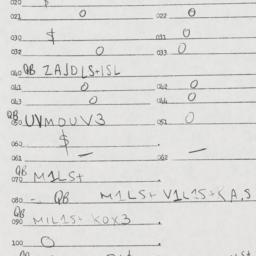 020 $
021 0 022 0
030 $ 031 0
032 0 033 0
040 QB ZAJDLS+ISL
041 0 042 0
043 0 044 0
050 QB UVMOUV3 051 0
060 $
061 — 062 —
070 QB M1LS+
080 - QB M1LS+ V1L1S+<A,S
090 QB MIL1S+ KOX3
100 0